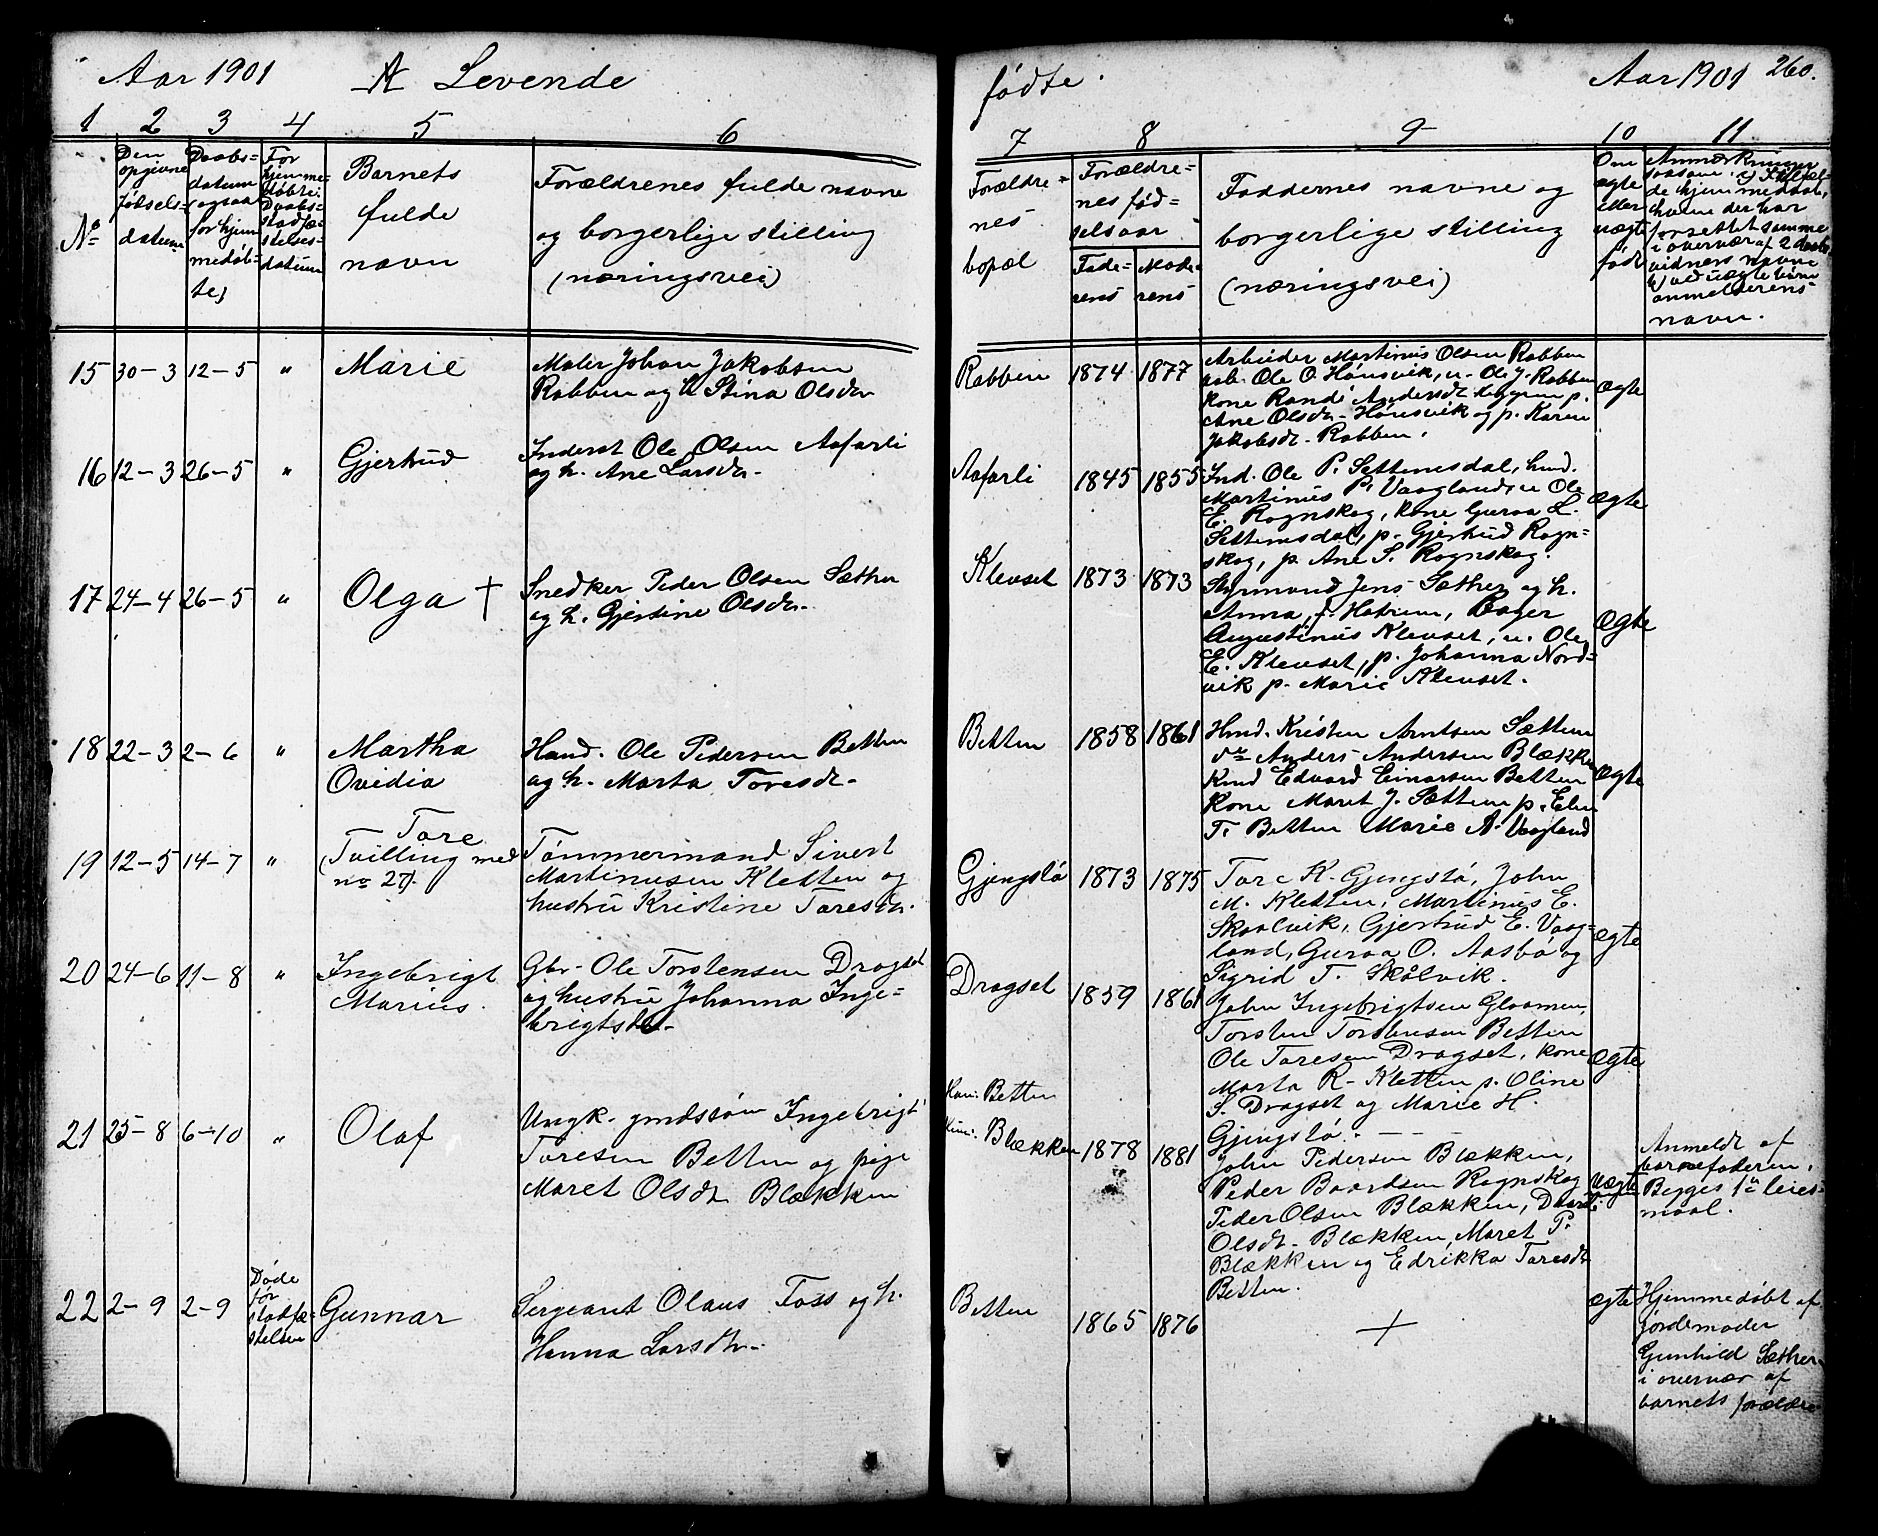 Aar 1901 A Levende
fødte. Aar 1901 260.
1 2 3 4 5 6
7 8 9 10 11
No
Den opgivne fødsels-datum
Daabs-datum (ogsaa for hjemmedøbte)
For hjemmedøbte: Daabs-stadfæstelses-datum
Barnets
fulde
navn
Forældrenes fulde navne
og borgerlige stilling
(næringsvei)
Forældre-
nes
bopæl
Forældre-
nes fød-
selsaar
Fade-
rens
Mode-
rens
Faddernes navne og
borgerlige stilling
(næringsvei)
Om
ægte
eller
uægte
født
Anmærkninger
saasom: a) I tilfæl-
de hjemmedaab,
hvem der har
forrettet samme
i overvær af 2 daabs-
vidners navne
b) ved uægte børn
anmelderens
navn.
15 30-3 12-5 " Marie
Maler Johan Jakobsen
Rabben og h. Stina Olsdr
Rabben 1874 1877
Arbeider Martinus Olsen Rabben
Ole O. Hønsvik, u. Ole J. Rabben
kone Randi Andersdt p.
Ane Olsdr. Hønsvik og p. Karen
Jakobsdt. Rabben.
ægte
16 12-3 26-5 " Gjertrud
Inderst Ole Olsen Aafarli
og h. Ane Larsdr.
Aafarli 1845 1855
Ind. Ole P. Settemsdal, hmd.
Martinus P. Vaagland, u. Ole
E. Rognskog, kone Guroa L.
Settemsdal, p. Gjertrud Rogn-
skog, p. Ane S. Rognskog.
ægte
17 24-4 26-5 " Olga +
Snedker Peder Olsen Sæther
og h. Gjertine Olsdr.
Klevset 1873 1873
Styrmand Jens Sæther og h.
Anna, f. Hatrem, Bager
Augustinus Klevset, u. Ole
E. Klevset, p. Johanna Nord-
vik p. Marie Klevset.
ægte
18 22-3 2-6 " Martha
Ovidia
Hmd. Ole Pedersen Betten
og h. Marta Toresdt.
Betten 1858 1861
Hmd. Kristen Arntsen Sættem
do Anders Andersen Blækken
Kmd Edvard Einarsen Betten
Kone Maret J. Sættem p. Elen
T. Betten Marie A. Vaagland
ægte
19 12-5 14-7 " Tore
(Tvilling med
no 27).
Tømmermand Sivert
Martinusen Kletten og
hustru Kristine Toresdr.
Gjengstø 1873 1875
Tore K. Gjengstø, John
M. Kletten, Martinus E.
Skaalvik, Gjertrud E. Vaag-
land, Guroa O. Aasbø og
Sigrid T. Skålvik.
ægte
20 24-6 11-8 " Ingebrigt
Marius.
Gbr. Ole Torstensen Drogset
og hustru Johanna Inge-
brigtsdr.
Drogset 1859 1861
John Ingebrigtsen Glaamen,
Torsten Torstensen Betten
Ole Toresen Drogset, kone
Marta R. Kletten p. Oline
S. Drogset og Marie H.
Gjengstø.
ægte
21 25-8 6-10 " Olaf
Ungk. gmdssøn Ingebrigt
Toresen Betten og pige
Maret Olsdt Blækken
Han: Betten
Hun: Blækken 1878 1881
John Pedersen Blækken,
Peder Baardsen Rognskog
Peder Olsen Blækken,
Olsdt. Blækken, Maret P.
Blækken og Edrikka Toresdt
Betten.
uægte
Anmeldt af
barnefaderen.
Begges 1ste leier-
maal.
22 2-9 2-9
Døde
før
stadfæ-
stelsen
Gunnar
Sergeant Olaus Foss og h.
Hanna Larsdtr.
Betten 1865 1876
+
ægte
Hjemmedøbt af
jordemoder
Gunhild Sæther
i overvær af
barnets forældre